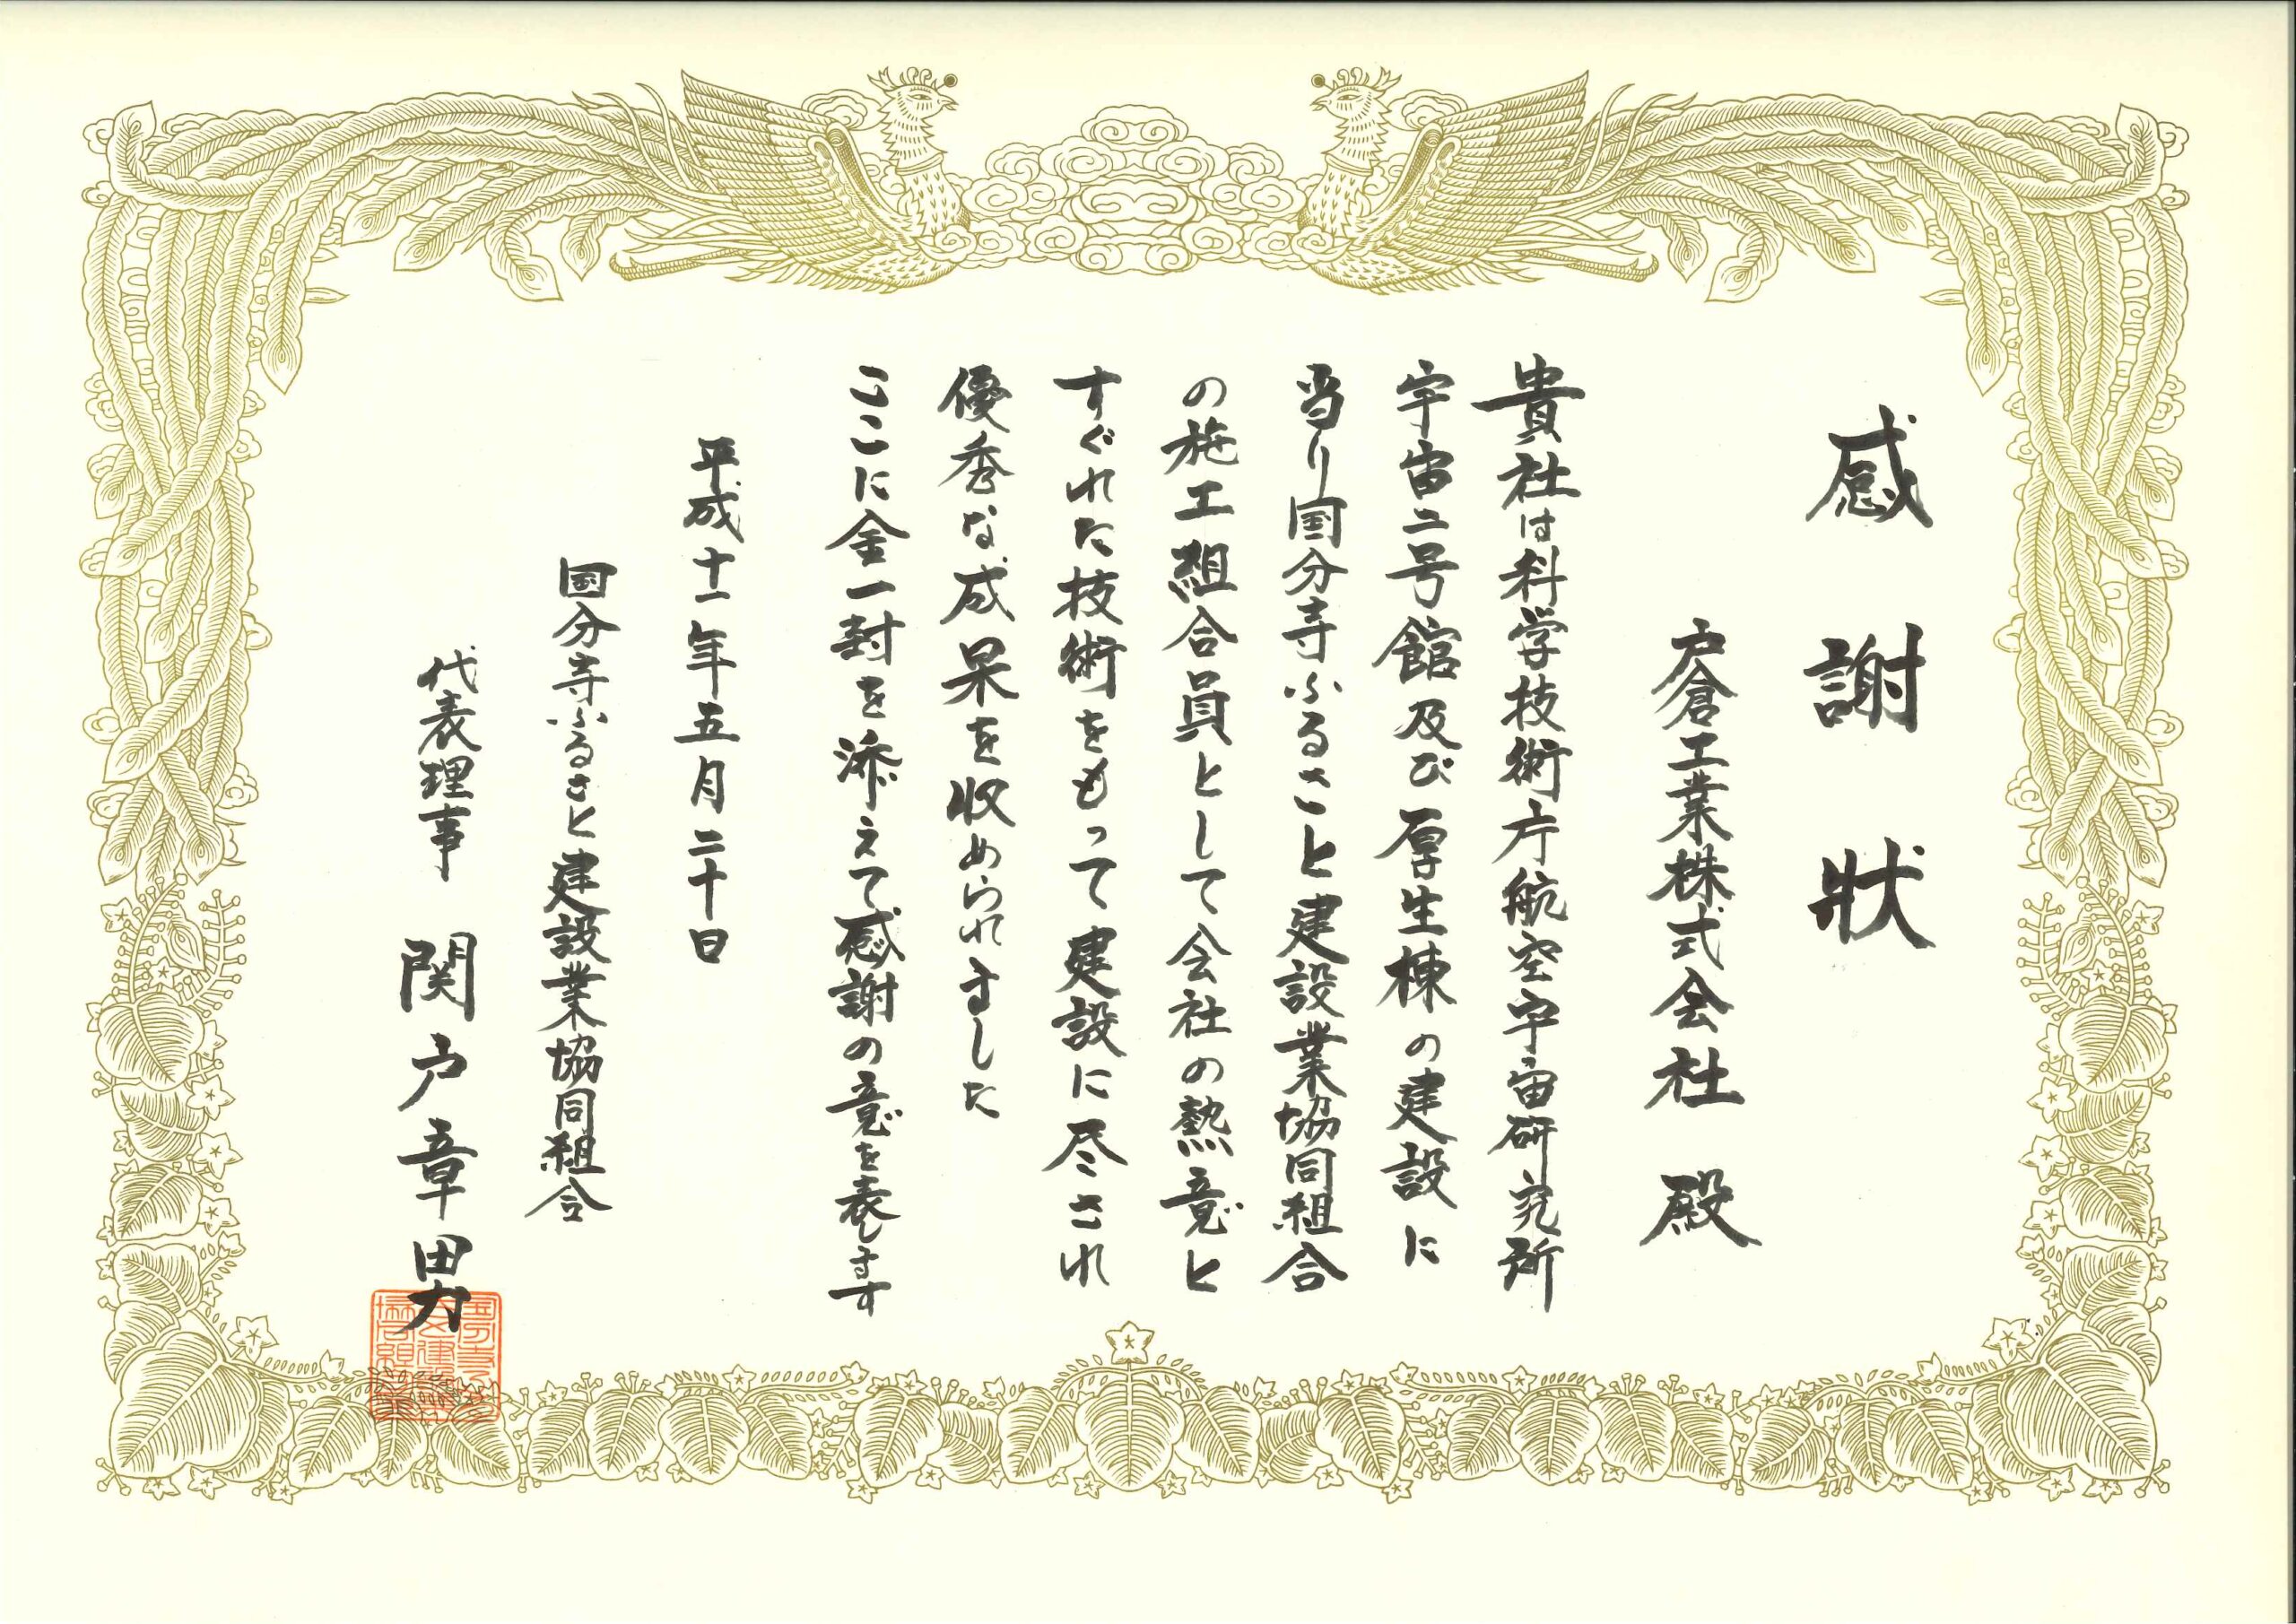 感謝狀
戸倉工業株式会社 殿
貴社は科学技術庁航空宇宙研究所
宇宙二号館及び厚生棟の建設に
当り国分寺ふるさと建設業協同組合
の施工組合員として会社の熱意と
すぐれた技術をもって建設に尽され
優秀な成果を収められました
ここに金一封を添えて感謝の意を表します
平成十一年五月二十日
国分寺ふるさと建設業協同組合
代表理事 関戸章男